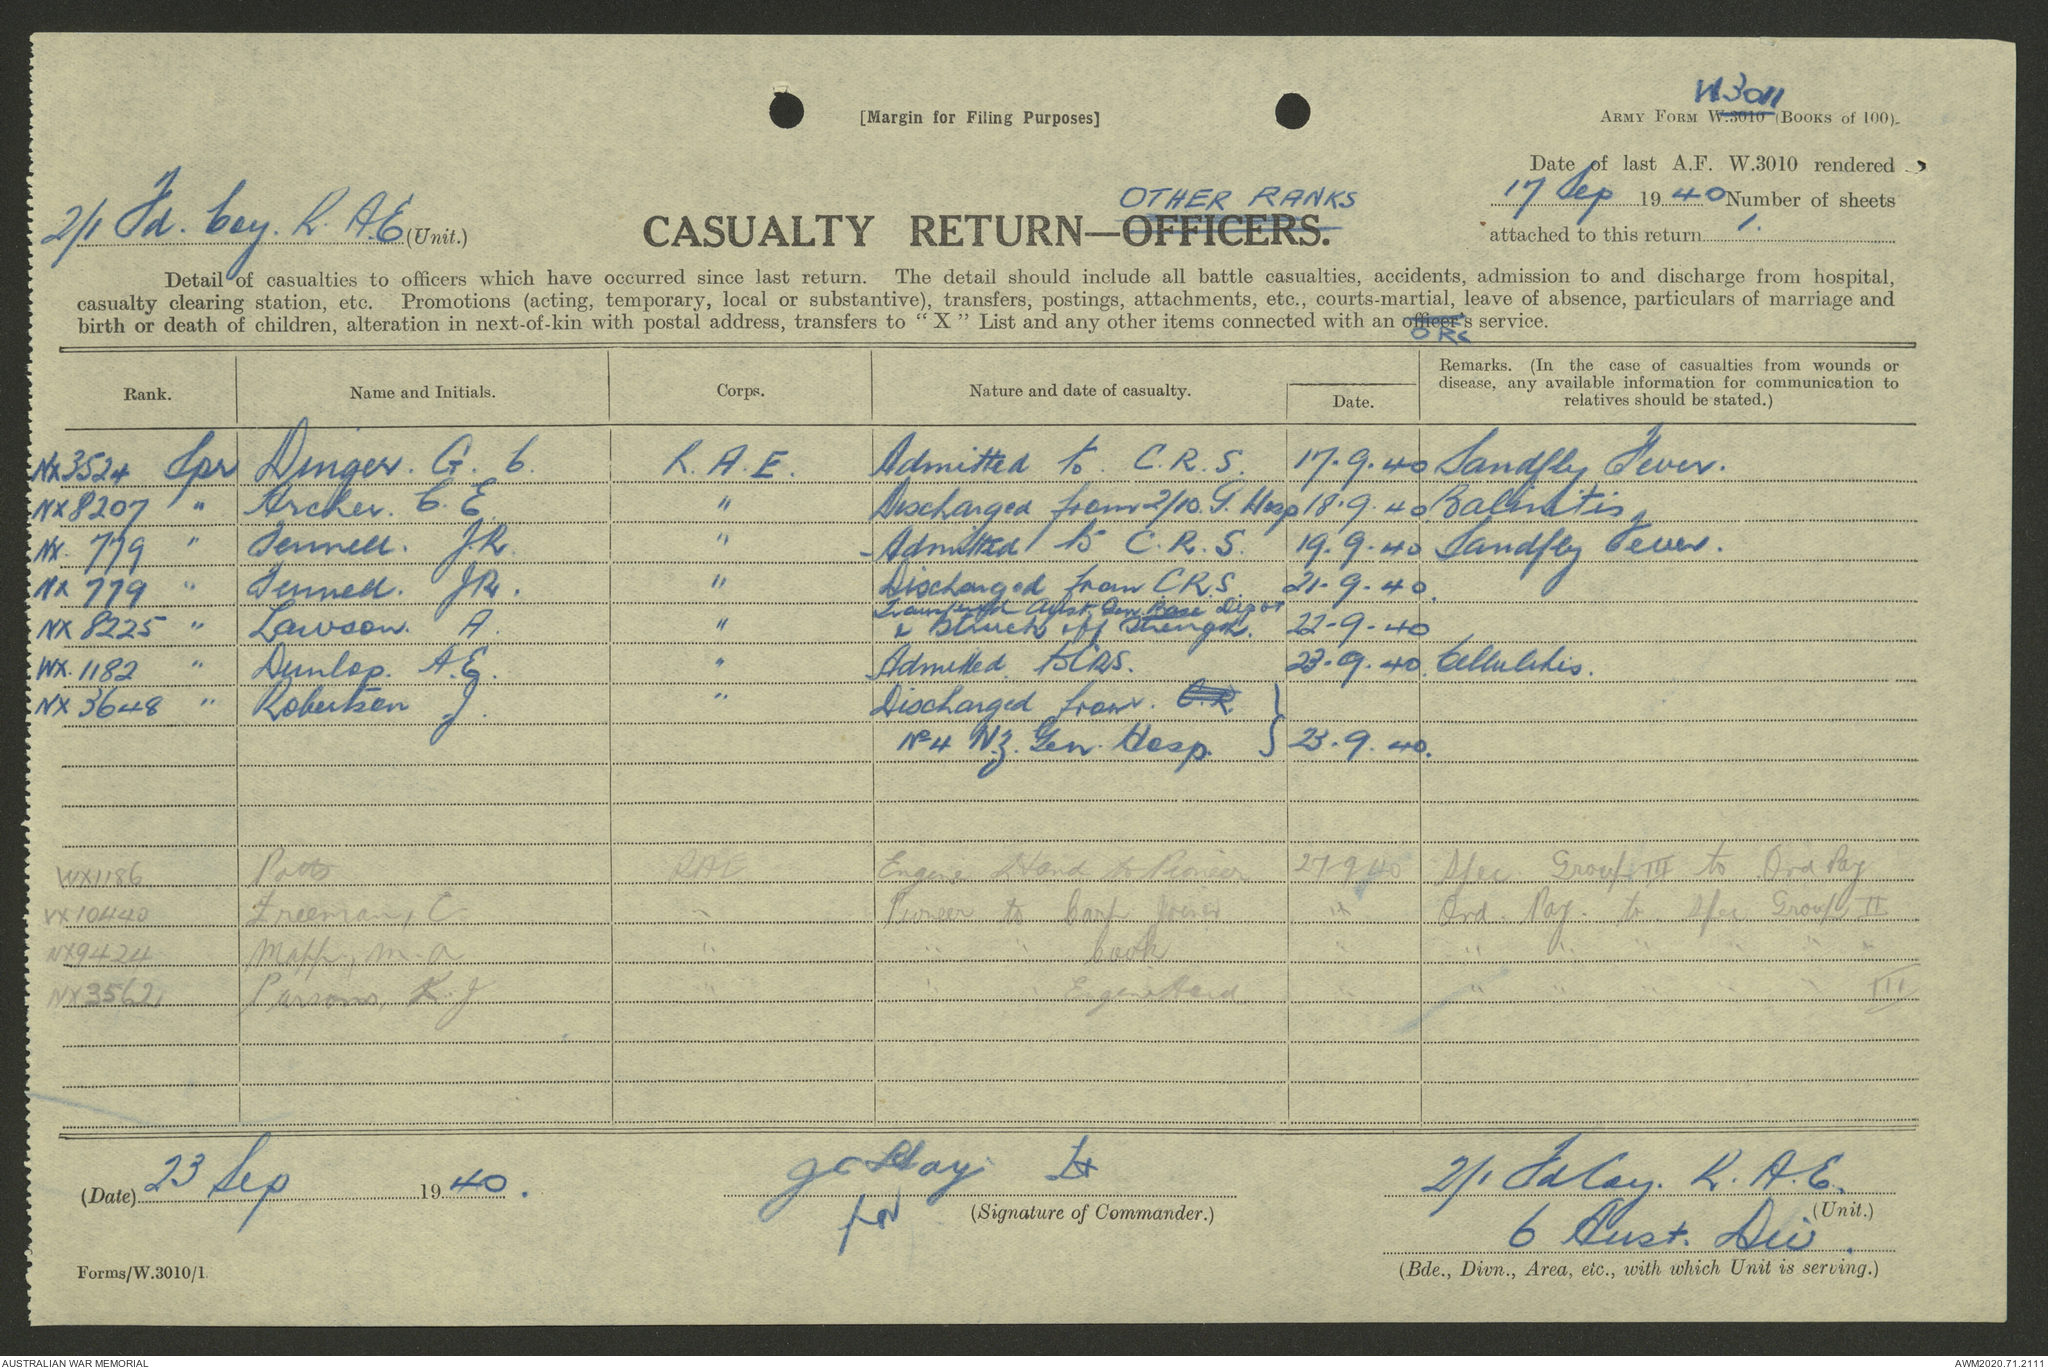 W3011
[Margin for Filing Purposes]
ARMY FORM W.3010 (BOOKS of 100).
Date of last A.F. W.3010 rendered
17 Sep 1940 Number of sheets
attached to this return 1.
2/1 Fd. Coy. R.A.E (Unit.)
OTHER RANKS
CASUALTY RETURN—OFFICERS.
Detail of casualties to officers which have occurred since last return. The detail should include all battle casualties, accidents, admission to and discharge from hospital,
casualty clearing station, etc. Promotions (acting, temporary, local or substantive), transfers, postings, attachments, etc., courts-martial, leave of absence, particulars of marriage and
birth or death of children, alteration in next-of-kin with postal address, transfers to "X" List and any other items connected with an officer's service.
ORs
Rank. Name and Initials. Corps. Nature and date of casualty. Date. Remarks. (In the case of casualties from wounds or
disease, any available information for communication to
relatives should be stated.)
NX3524 Spr Dinger. G. C. R.A.E. Admitted to C.R.S. 17.9.40 Sandfly Fever.
NX8207 " Archer. C. E. " Discharged from 2/10. G. Hosp 18.9.40 Balinitis
NX. 779 " Fennell. J.R. " Admitted to C.R.S. 19.9.40 Sandfly Fever.
NX 779 " Fennell. J.R. " Discharged from C.R.S. 21-9.40.
NX 8225 " Lawson. A. " Transferred Aust. Gen. Base Depot
& Struck off Strength. 22-9-40
WX.1182 " Dunlop. A.E. " Admitted to CRS. 23-9.40. Cellulitis.
NX 3648 " Robertson J. " Discharged from. C.R
No 4 N.Z. Gen. Hosp. 23.9.40.
WX1186 Potts RAE Engine Hand to Pioneer 27 9 40 Spec Group III to Ord Pay
VX10440 Freeman, C " Pioneer to Carp Joiner " Ord. Pay. to Spec Group II
NX9424 Mapp, M. A " " " Cook " " " " " " "
NX3562 Parsons, K. J " " Engine Hand " " " " " " III
(Date) 23 Sep 1940.
Lt
for (Signature of Commander.)
2/1 Fd Coy. R.A.E.
(Unit.)
6 Aust. Div.
(Bde., Divn., Area, etc., with which Unit is serving.)
Forms/W.3010/1.
AUSTRALIAN WAR MEMORIAL
AWM2020.71.2111